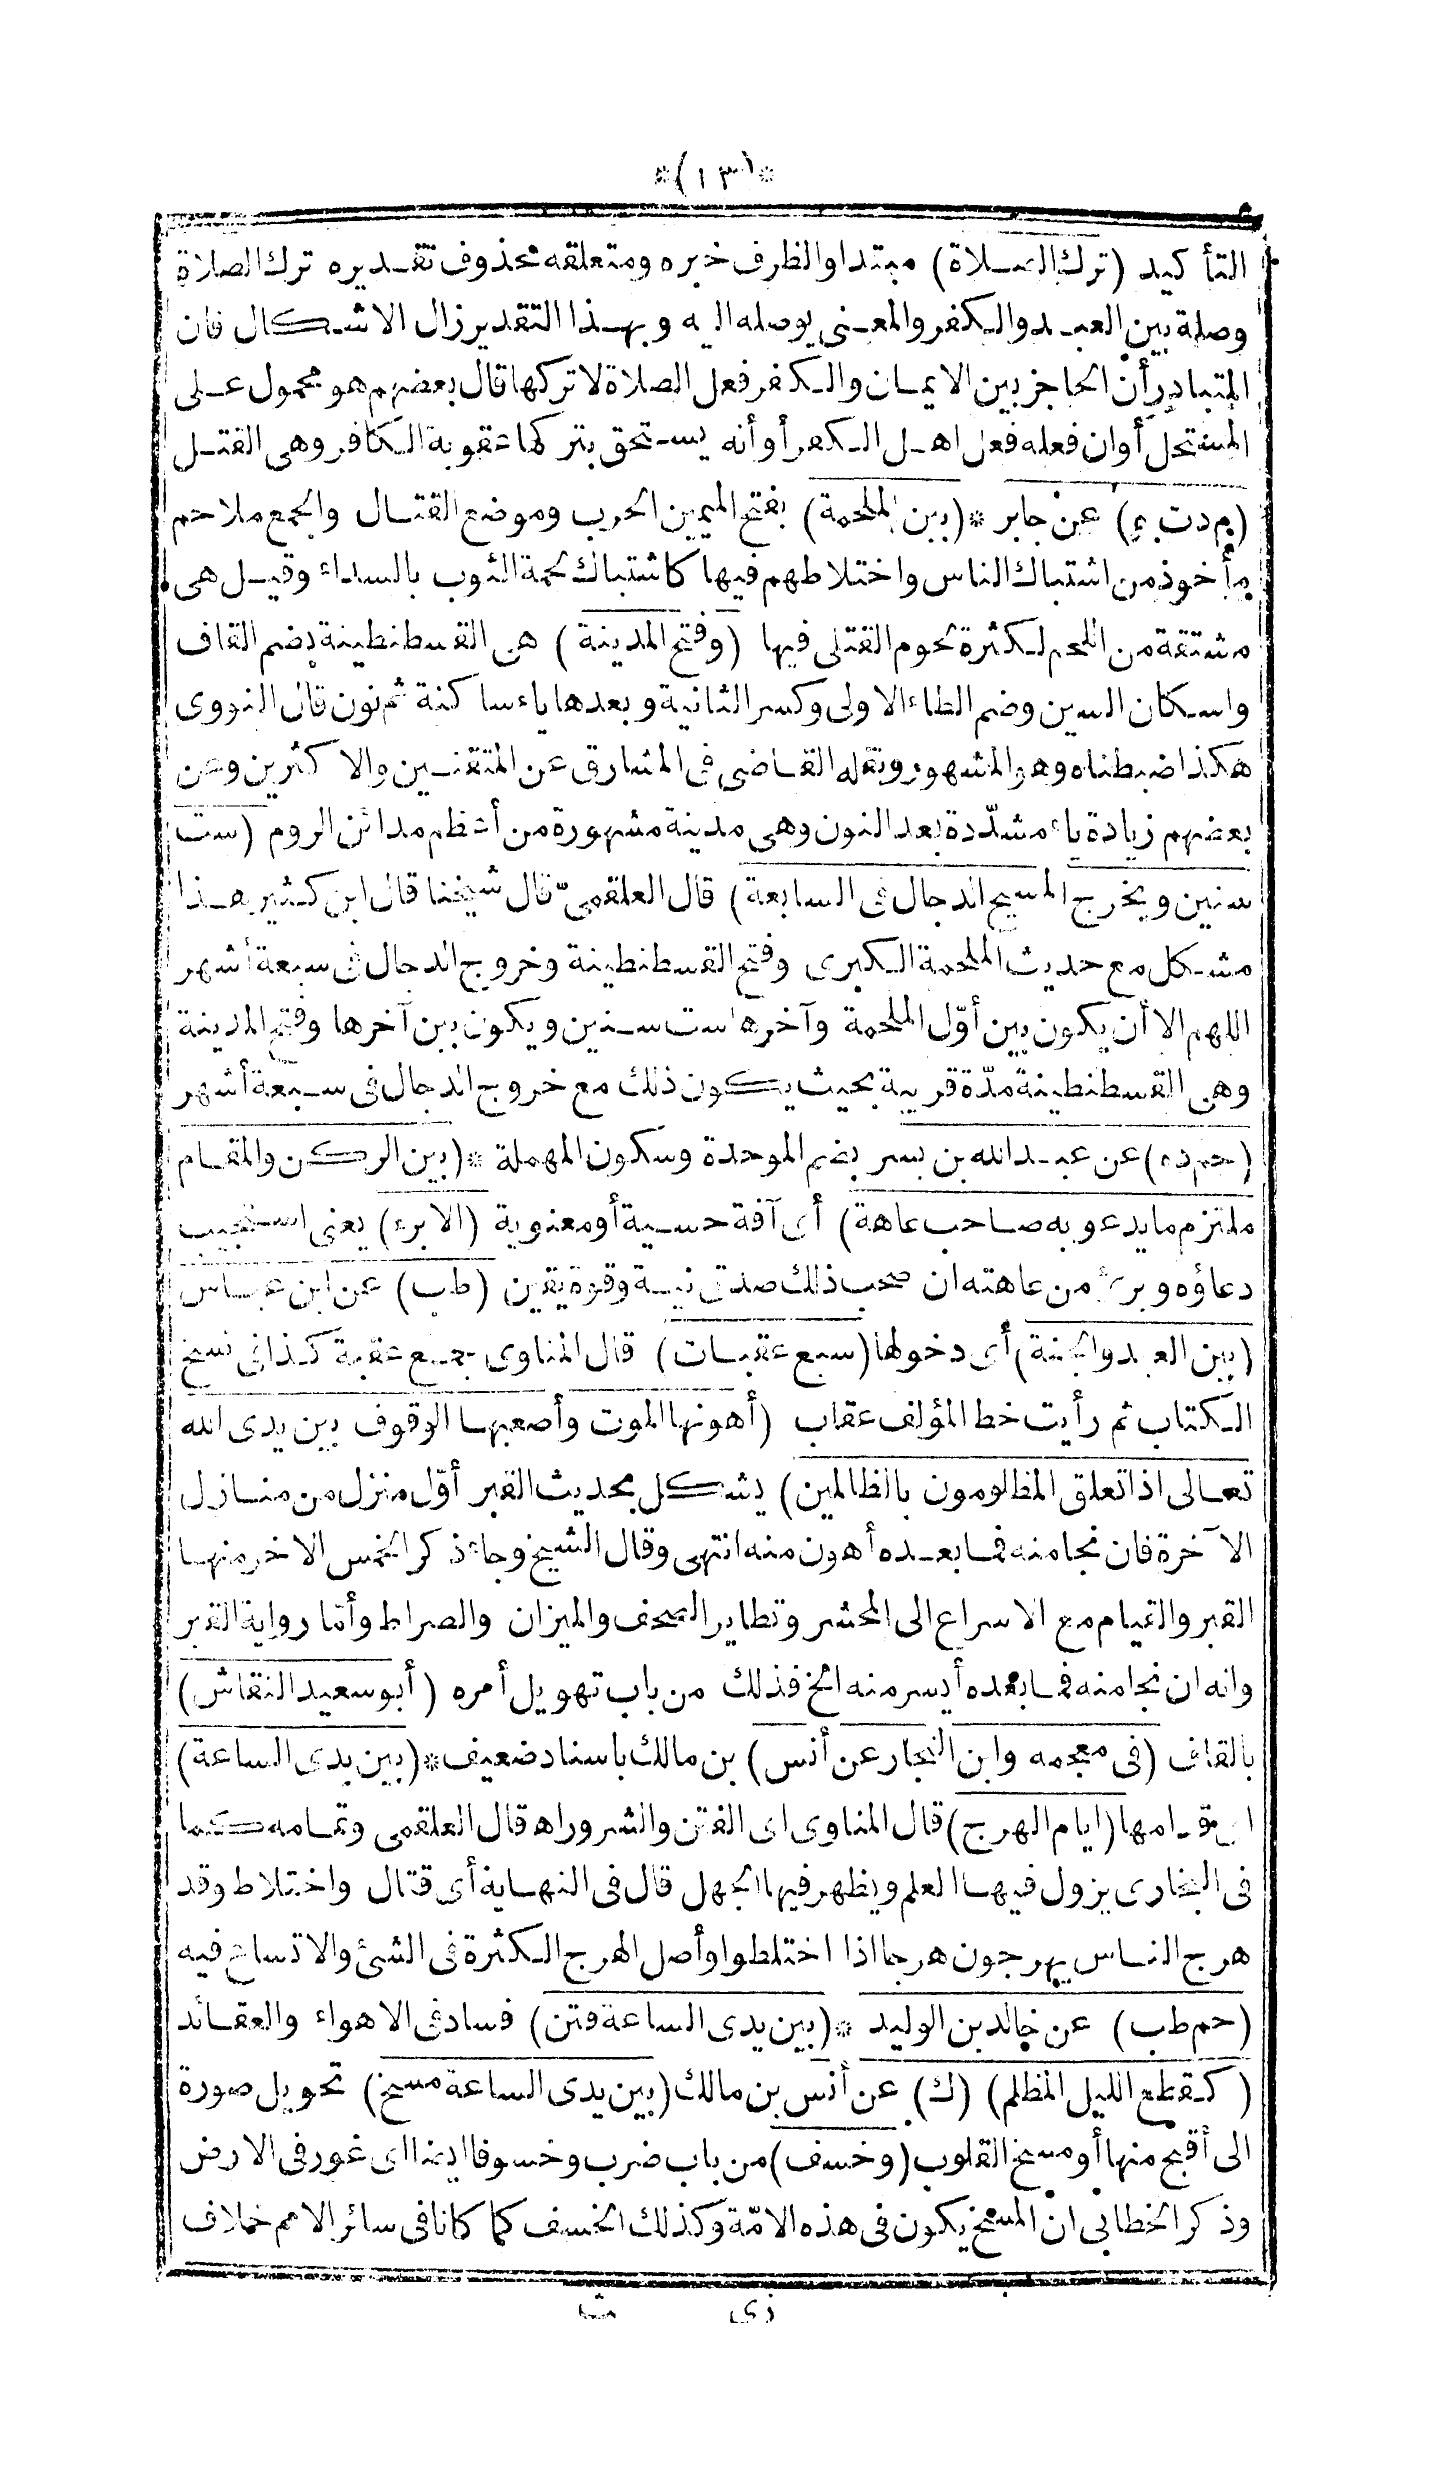 *(١٣)*
التأكيد (ترك الصلاة) مبتدا والظرف خبره ومتعلقه محذوف تقديره ترك الصلاة
وصلة بين العبد والكفر والمعنى يوصله اليه وبهذا التقدير زال الاشكال فان
المتبادر أن الحاجز بين الايمان والكفر فعل الصلاة لا تركها قال بعضهم هو محمول على
المستحل أو ان فعله فعل اهل الكفر أو أنه يستحق بتركها عقوبة الكافر وهى القتل
(م د ت ه) عن جابر *(بين الملحمة) بفتح الميمين الحرب وموضع القتال والجمع ملاحم
مأخوذ من اشتباك الناس واختلاطهم فيها كاشتباك لحمة الثوب بالسداء وقيل هى
مشتقة من اللحم لكثرة لحوم القتلى فيها (وفتح المدينة) هى القسطنطينة بضم القاف
واسكان السين وضم الطاء الاولى وكسر الثانية وبعدها ياء ساكنة ثم نون قال النووى
هكذا ضبطناه وهو المشهور ونقله القاضى فى المشارق عن المتقنين والاكثرين وعن
بعضهم زيادة ياء مشدّدة بعد النون وهى مدينة مشهورة من أعظم مدائن الروم (ست
سنين ويخرج المسيح الدجال فى السابعة) قال العلقمىّ قال شيخنا قال ابن كثير هذا
مشكل مع حديث الملحمة الكبرى وفتح القسطنطينة وخروج الدجال فى سبعة أشهر
اللهم الا أن يكون بين أوّل الملحمة وآخرها ست سنين ويكون بين آخرها وفتح المدينة
وهى القسطنطينة مدّة قريبة بحيث يكون ذلك مع خروج الدجال فى سبعة أشهر
(حم د ه) عن عبد الله بن بسر بضم الموحدة وسكون المهملة *(بين الركن والمقام
ملتزم ما يدعو به صاحب عاهة) أى آفة حسية أو معنوية (الا برء) يعنى استجيب
دعاؤه وبرئ من عاهته ان صحب ذلك صدق نية وقوة يقين (طب) عن ابن عباس
(بين العبد والجنة) أى دخولها (سبع عقبات) قال المناوى جمع عقبة كذا فى نسخ
الكتاب ثم رأيت خط المؤلف عقاب (أهونها الموت وأصعبها الوقوف بين يدى الله
تعالى اذا تعلق المظلومون بالظالمين) يشكل بحديث القبر أوّل منزل من منازل
الآخرة فان نجا منه فما بعده أهون منه انتهى وقال الشيخ وجاء ذكر الخمس الاخر منها
القبر والقيام مع الاسراع الى المحشر وتطاير الصحف والميزان والصراط وأمّا رواية القبر
وانه ان نجا منه فما بعده أيسر منه الخ فذلك من باب تهويل أمره (أبو سعيد النقاش)
بالقاف (فى معجمه وابن النجار عن أنس) بن مالك باسناد ضعيف *(بين يدى الساعة)
اى قدامها (ايام الهرج) قال المناوى اى الفتن والشرور اه قال العلقمى وتمامه كما
فى البخارى يزول فيها العلم ويظهر فيها الجهل قال فى النهاية أى قتال واختلاط وقد
هرج الناس يهرجون هرجا اذا اختلطوا وأصل الهرج الكثرة فى الشئ والاتساع فيه
(حم طب) عن خالد بن الوليد *(بين يدى الساعة فتن) فساد فى الاهواء والعقائد
(كقطع الليل المظلم) (ك) عن أنس بن مالك (بين يدى الساعة مسخ) تحويل صورة
الى أقبح منها أو مسخ القلوب (وخسف) من باب ضرب وخسوفا ايضا اى غور فى الارض
وذكر الخطابى ان المسخ يكون فى هذه الامّة وكذلك الخسف كما كانا فى سائر الامم خلاف
زى ث